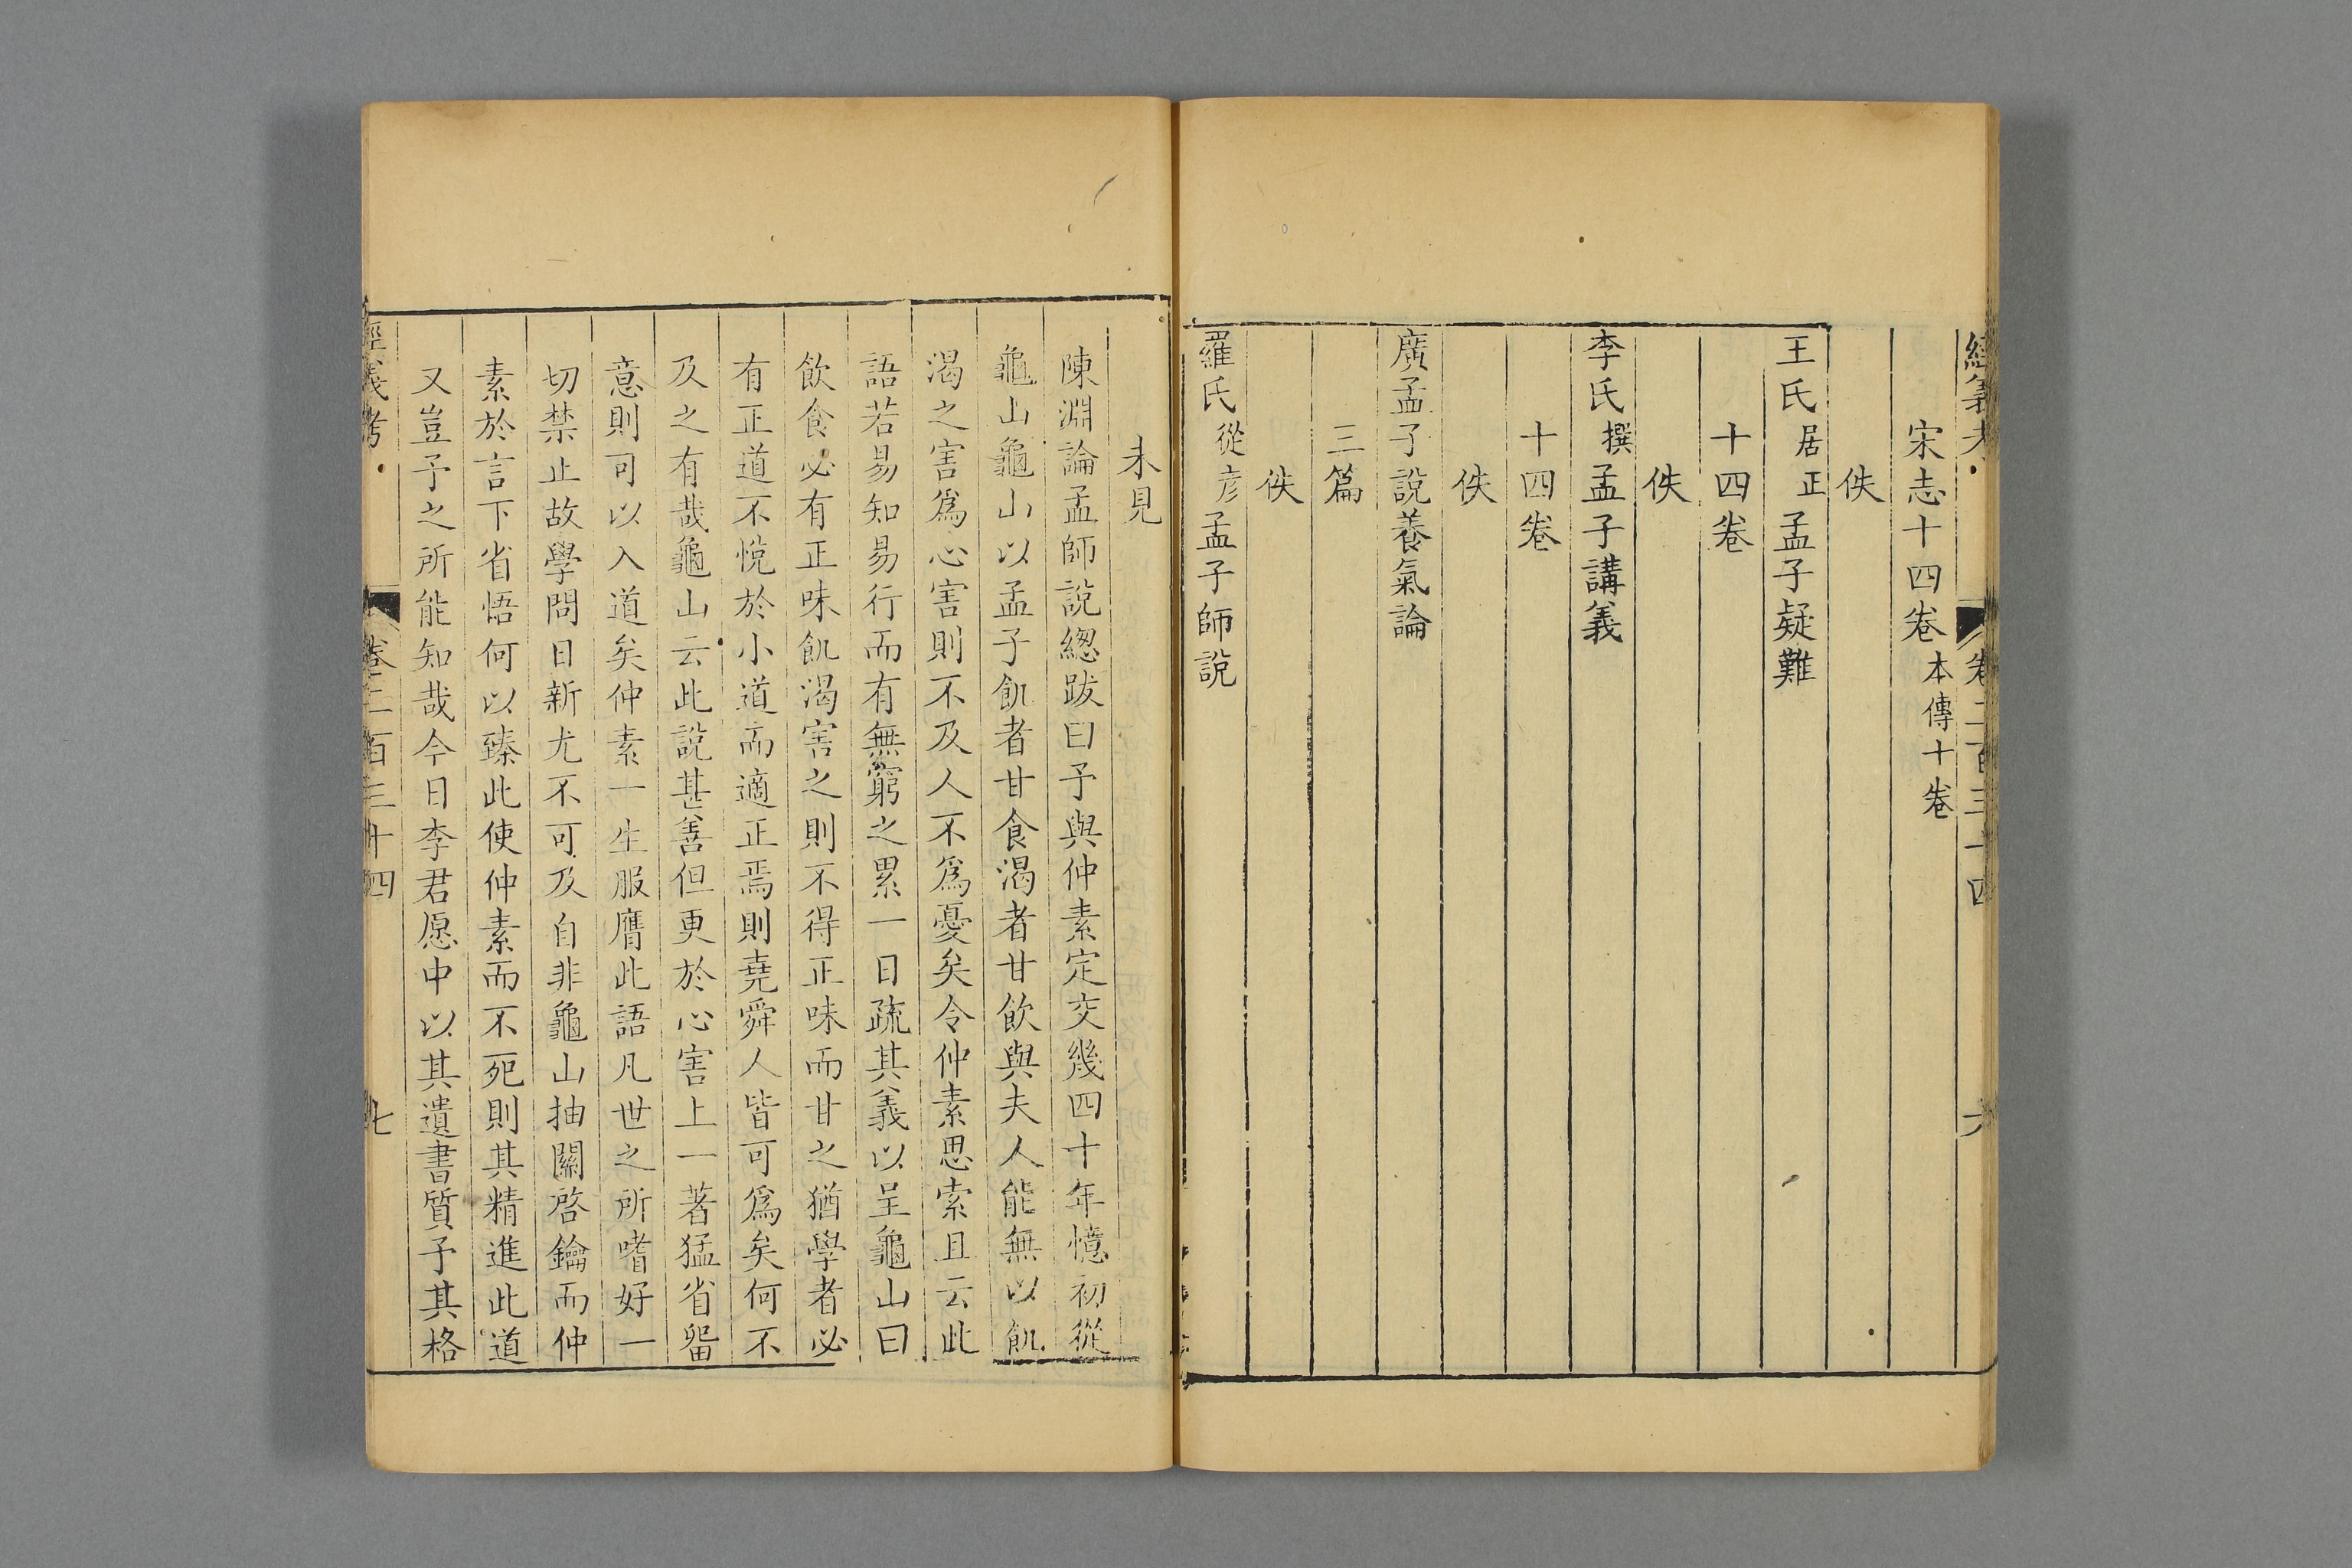 經義考
卷二百三十四
六
宋志十四卷本傳十卷
佚
王氏居正孟子疑難
十四卷
佚
李氏撰孟子講義
十四卷
佚
廣孟子說養氣論
三篇
佚
羅氏從彥孟子師說
未見
陳淵論孟師說緫跋曰予與仲素定交幾四十年憶初從
龜山龜山以孟子飢者甘食渴者甘飲與夫人能無以飢
渴之害爲心害則不及人不爲憂矣令仲素思索且云此
語若易知易行而有無窮之累一日疏其義以呈龜山曰
飲食必有正味飢渴害之則不得正味而甘之猶學者必
有正道不悅於小道而適正焉則堯舜人皆可爲矣何不
及之有哉龜山云此說甚善但更於心害上一著猛省畱
意則可以入道矣仲素一生服膺此語凡世之所嗜好一
切禁止故學問日新尤不可及自非龜山抽關啓鑰而仲
素於言下省悟何以臻此使仲素而不死則其精進此道
又豈予之所能知哉今日李君愿中以其遺書質予其格
經義考
卷二百三十四
七